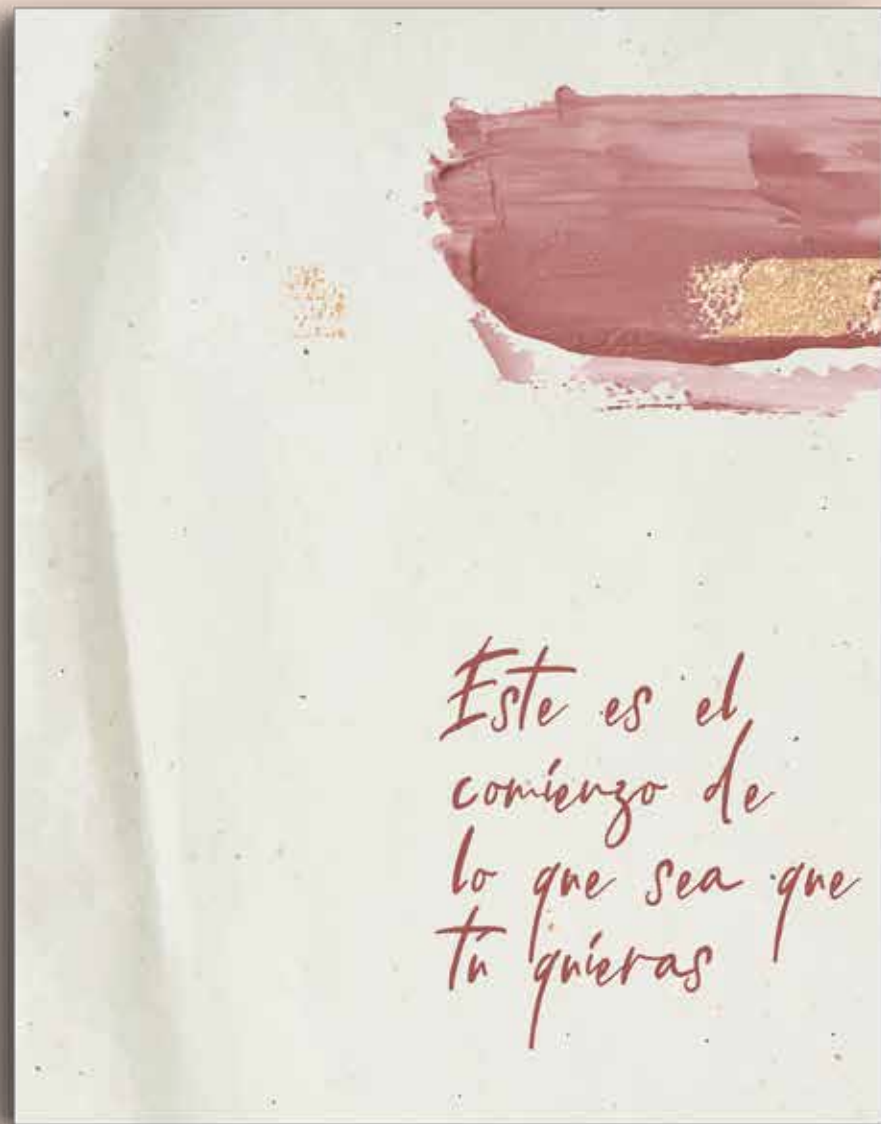 Este es el
comienzo de
lo que sea que
tú quieras